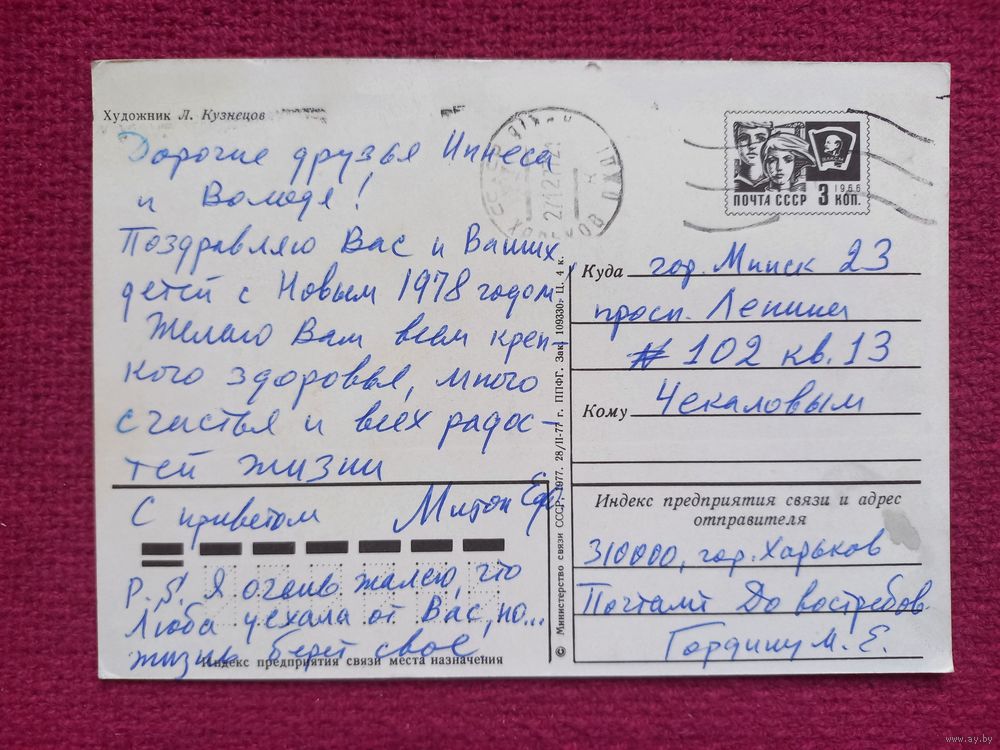 Художник Л. Кузнецов
Дорогие друзья Иннеса
и Володя!
Поздравляю Вас и Ваших
детей с Новым 1978 годом
Желаю Вам всем креп-
кого здоровья, много
счастья и всех радос-
тей жизни
С приветом
P.S. Я очень жалею, что
Люба уехала от Вас, но...
жизнь берет свое
Индекс предприятия связи места назначения
© Министерство связи СССР, 1977. 28/II-77 г. ППФГ. Зак. 109330. Ц. 4 к.
ВЛКСМ
1966
ПОЧТА СССР 3 КОП.
Куда гор. Минск 23
просп. Ленина
# 102 кв. 13
Кому Чекаловым
Индекс предприятия связи и адрес
отправителя
310000, гор. Харьков
Почтамт До востребов
Гордину М. Е.
www.ay.by